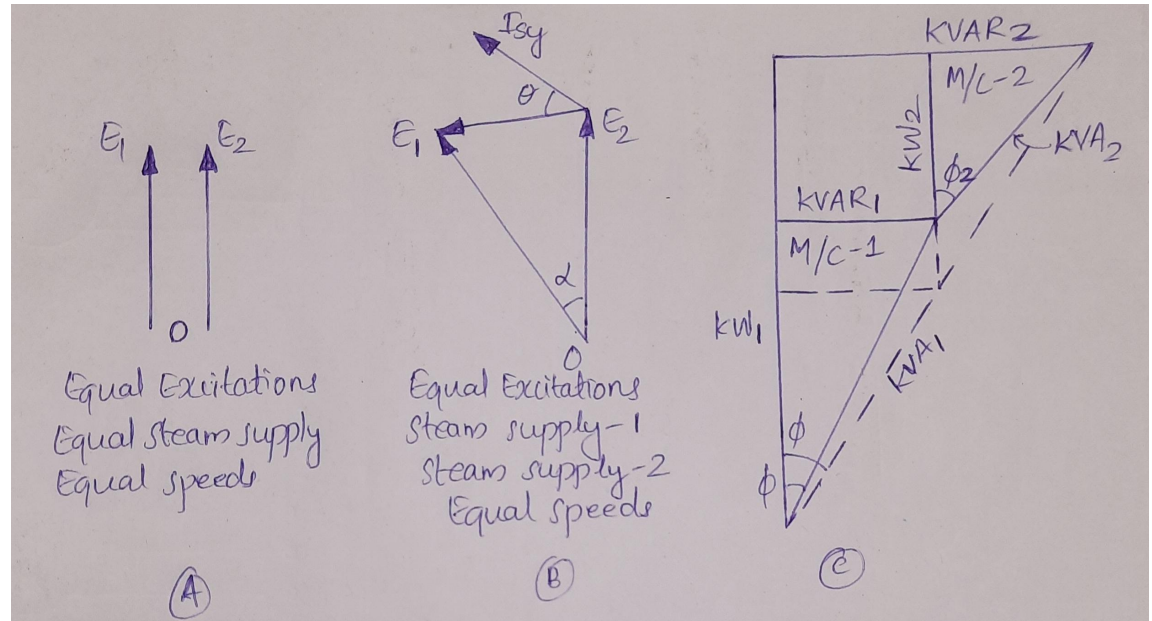 E1 E2
O
Equal Excitations
Equal steam supply
Equal speeds
A
Isy
θ
E1 E2
α
O
Equal Excitations
Steam supply-1
Steam supply-2
Equal speeds
B
KVAR2
M/C-2
KW2
KVA2
ϕ2
KVAR1
M/C-1
KW1
KVA1
ϕ
ϕ
C